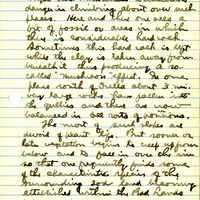 danger in climbing about over such
places. Here and there one sees a
bit of fossil or area in which
this is considerable hard rock.
Sometimes this hard rock is left
while the clay is taken away from
beneath it thus producing a so
called "mushroom" effect. In one
place north of Orella about 3 mi.
very large rocks have fallen into
the gullies and there are now
balanced in all sorts of positions.
The most of such slopes are
devoid of plant life. But sooner or
later vegetation begins to creep up from
below and to pass in over the rim
so that one frequently finds some
of the characteristic species of the
surrounding sod land blooming
established within the Bad Lands